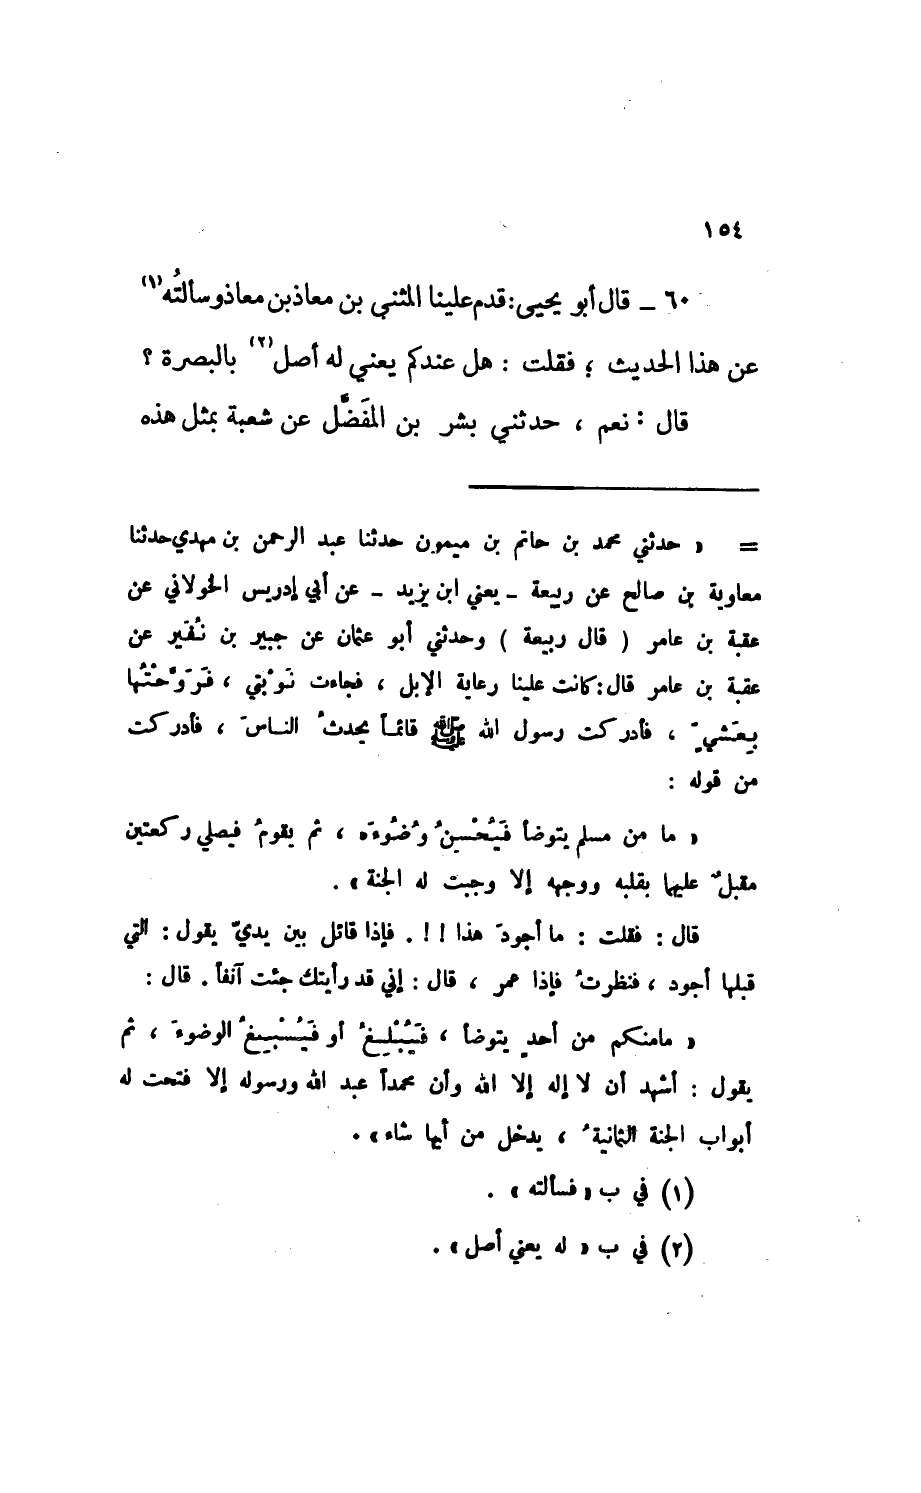 ١٥٤
٦٠ ـ قال أبو يحيى : قدم علينا المثنى بن معاذ بن معاذ وسألتُه (١)
عن هذا الحديث ؛ فقلت : هل عندكم يعني له أصل (٢) بالبصرة ؟
قال : نعم ، حدثني بشر بن المفَضَّل عن شعبة بمثل هذه
= « حدثني محمد بن حاتم بن ميمون حدثنا عبد الرحمن بن مهدي حدثنا
معاوية بن صالح عن ربيعة ـ يعني ابن يزيد ـ عن أبي إدريس الخولاني عن
عقبة بن عامر ( قال ربيعة ) وحدثني أبو عثمان عن جبير بن نُفَير عن
عقبة بن عامر قال : كانت علينا رعاية الإبل ، فجاءت نَوْبتي ، فَرَوَّحْتُها
بِعَشيٍّ ، فأدركت رسول الله ﷺ قائماً يحدثُ الناسَ ، فأدركت
من قوله :
« ما من مسلم يتوضأ فيُحْسِنُ وُضُوءَه ، ثم يقومُ فيصلي ركعتين
مقبلٌ عليها بقلبه ووجهه إلا وجبت له الجنة » .
قال : فقلت : ما أجودَ هذا !! . فإذا قائل بين يديّ يقول : التي
قبلها أجود ، فنظرتُ فإذا عمر ، قال : إني قد رأيتك جئت آنفاً . قال :
« مامنكم من أحدٍ يتوضأ ، فَيُبْلِغُ أو فَيُسْبِغُ الوضوءَ ، ثم
يقول : أشهد أن لا إله إلا الله وأن محمداً عبد الله ورسوله إلا فتحت له
أبواب الجنة الثمانيةُ ، يدخل من أيها شاء » .
(١) في ب « فسألته » .
(٢) في ب « له يعني أصل » .